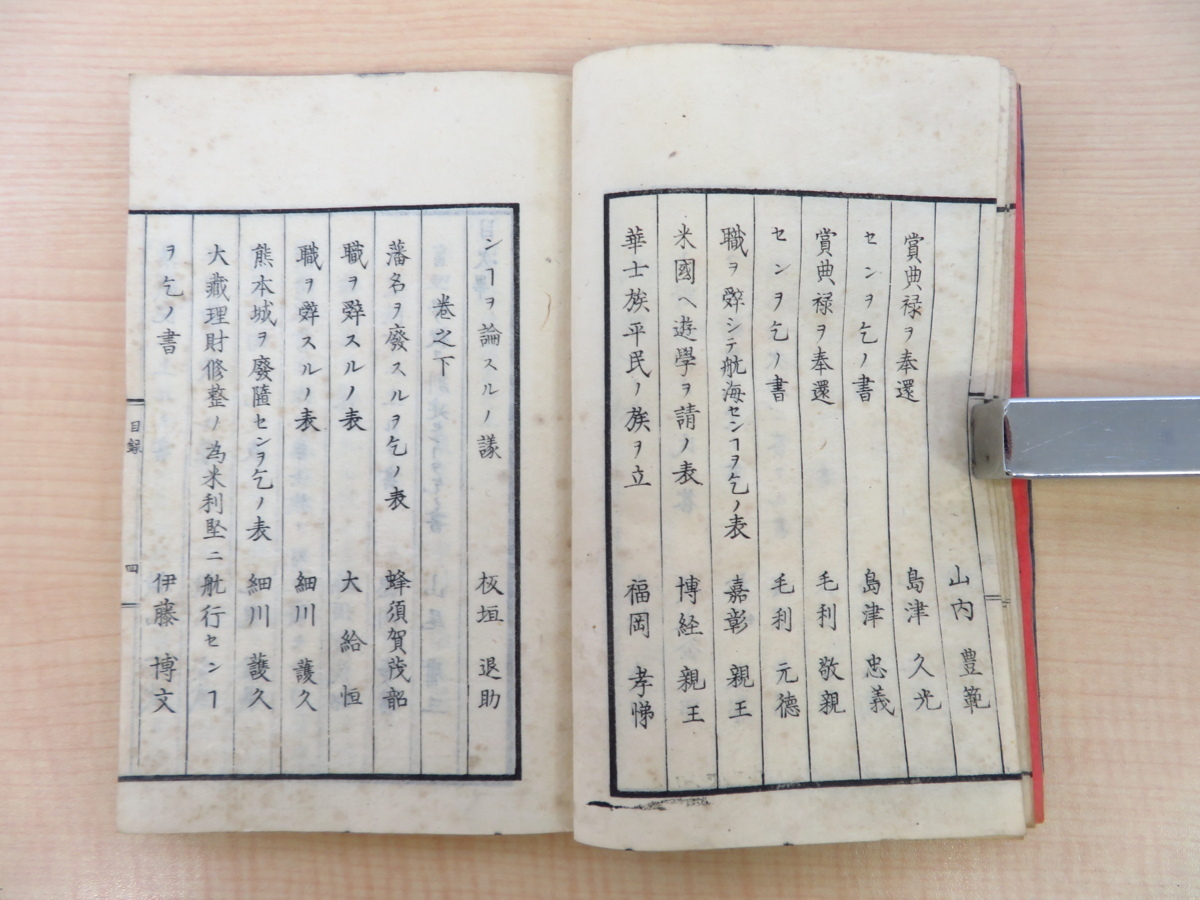 山内 豊範
賞典禄ヲ奉還 島津 久光
センヲ乞ノ書 島津 忠義
賞典禄ヲ奉還 毛利 敬親
センヲ乞ノ書 毛利 元徳
職ヲ辭シテ航海センヿヲ乞ノ表 嘉彰 親王
米國ヘ遊學ヲ請ノ表 博経 親王
華士族平民ノ族ヲ立 福岡 孝悌
ンヿヲ論スルノ議 板垣 退助
巻之下
藩名ヲ廢スルヲ乞ノ表 蜂須賀茂韶
職ヲ辭スルノ表 大 給 恒
職ヲ辭スルノ表 細川 護久
熊本城ヲ廢隳センヲ乞ノ表 細川 護久
大藏理財修整ノ為米利堅ニ航行センヿ
ヲ乞ノ書 伊藤 博文
目録
四